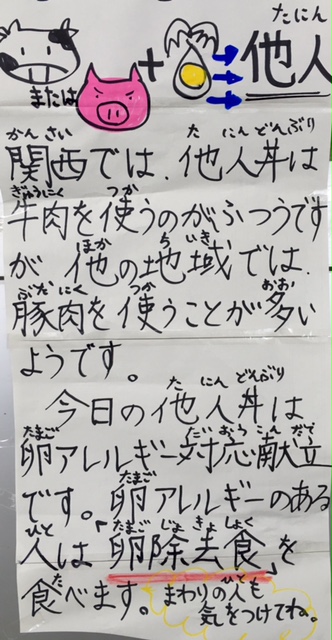 たにん
または + 他人
かんさい た にんどんぶり
関西では、他人丼は
ぎゅうにく つか
牛肉を使うのがふつうです
ほか ち いき
が 他の地域では、
ぶた にく つか おお
豚肉を使うことが多い
ようです。
た にん どんぶり
今日の他人丼は
たまご たい おう こん だて
卵アレルギー対応献立
たまご
です。卵アレルギーのある
ひと たまご じょ きょ しょく
人は「卵除去食」を
た
食べます。
ひと
まわりの人も
き
気をつけてね。